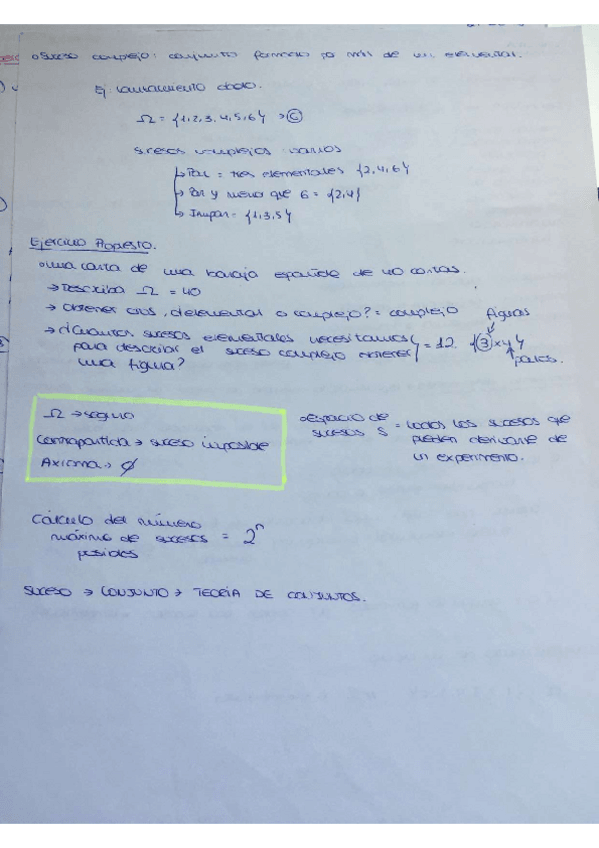 o Suceso complejo: conjunto formado x más de un elemental.
Ej lanzamiento dado.
Ω = {1,2,3,4,5,6} → 6
sucesos complejos varios
↳ Par = tres elementales {2,4,6}
↳ Par y menor que 6 = {2,4}
↳ Impar = {1,3,5}
Ejercicio Propuesto.
o una carta de una baraja española de 40 cartas.
→ Describa Ω = 40
→ obtener oros, ¿elemental o complejo? = complejo
→ ¿Cuántos sucesos elementales necesitamos
para describir el suceso complejo obtener } = 12. {3 x 4}
una figura?
figuras
palos.
Ω → seguro
Contrapartida → suceso imposible
Axioma → ∅
o Espacio de
sucesos S = todos los sucesos que
pueden derivarse de
un experimento.
Cálculo del número
máximo de sucesos = 2ⁿ
posibles
SUCESO → CONJUNTO → TEORÍA DE CONJUNTOS.